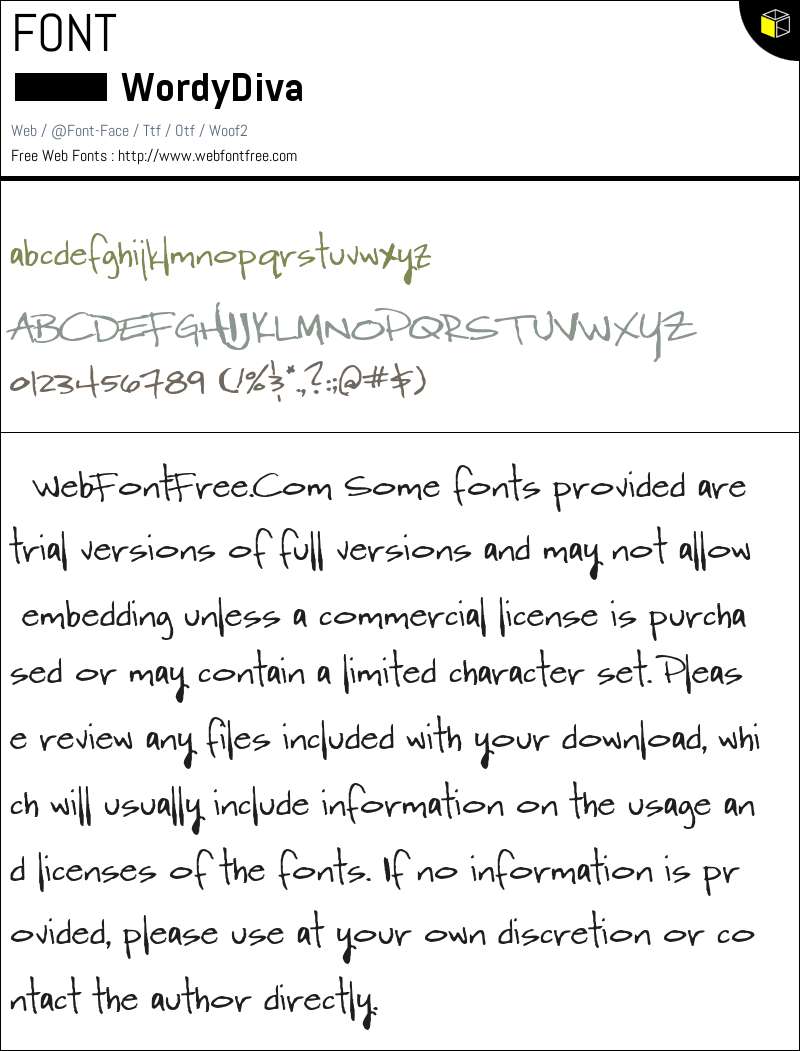 FONT
WordyDiva
Web / @Font-Face / Ttf / Otf / Woof2
Free Web Fonts : http://www.webfontfree.com
abcdefghijklmnopqrstuvwxyz
ABCDEFGHIJKLMNOPQRSTUVWXYZ
0123456789 (!%&*.,?:;@#$)
WebFontFree.Com Some fonts provided are
trial versions of full versions and may not allow
embedding unless a commercial license is purcha
sed or may contain a limited character set. Pleas
e review any files included with your download, whi
ch will usually include information on the usage an
d licenses of the fonts. If no information is pr
ovided, please use at your own discretion or co
ntact the author directly.